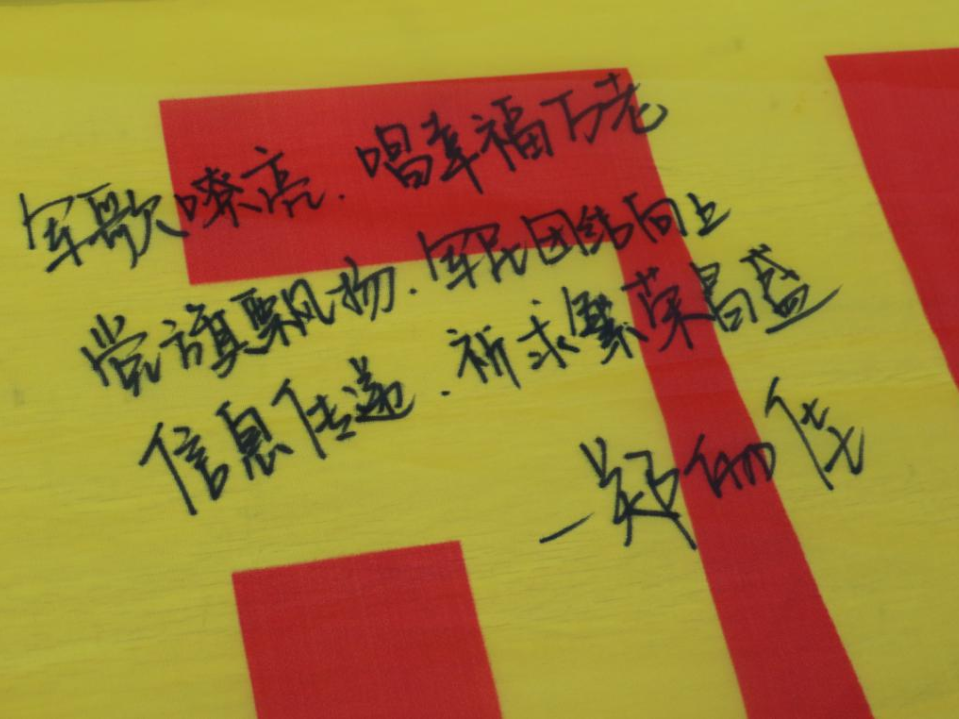 军歌嘹亮.唱幸福万老
党旗飘扬.军民团结向上
信息传递.祈求繁荣昌盛
—郑